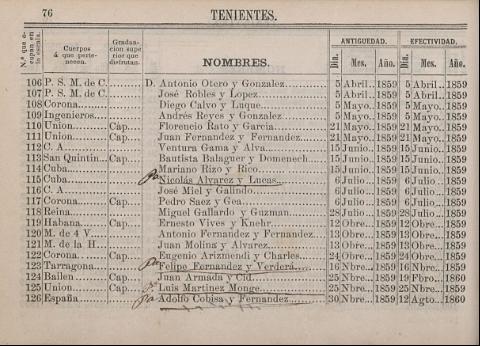 76 TENIENTES.
ANTIGUEDAD. EFECTIVIDAD.
N.º que o-cupan en la escala. Cuerpos á que perte-necen. Gradua-cion supe rior que disfrutan. NOMBRES. Dia. Mes. Año. Dia. Mes. Año.
106 P. S. M. de C. D. Antonio Otero y Gonzalez 5 Abril.. 1859 5 Abril.. 1859
107 P. S. M. de C. José Robles y Lopez 5 Abril.. 1859 5 Abril.. 1859
108 Corona Diego Calvo y Luque 5 Mayo.. 1859 5 Mayo.. 1859
109 Ingenieros Andrés Reyes y Gonzalez 5 Mayo.. 1859 5 Mayo.. 1859
110 Union Cap. Florencio Rato y Garcia 21 Mayo.. 1859 21 Mayo.. 1859
111 Union Cap. Juan Fernandez y Fernandez 21 Mayo.. 1859 21 Mayo.. 1859
112 C. A. Ventura Gama y Alva 15 Junio.. 1859 15 Junio.. 1859
113 San Quintin Cap. Bautista Balaguer y Domenech 15 Junio.. 1859 15 Junio.. 1859
114 Cuba Mariano Rizo y Rico 15 Junio.. 1859 15 Junio.. 1859
115 Cuba Nicolás Alvarez y Lucas 6 Julio.. 1859 6 Julio.. 1859
116 C. A. José Miel y Galindo 6 Julio.. 1859 6 Julio.. 1859
117 Corona Cap. Pedro Saez y Gea 6 Julio.. 1859 6 Julio.. 1859
118 Reina Miguel Gallardo y Guzman 28 Julio.. 1859 28 Julio.. 1859
119 Habana Cap. Ernesto Vives y Knehr 12 Obre... 1859 12 Obre... 1859
120 M. de 4 V. Antonio Fernandez y Fernandez 13 Obre... 1859 13 Obre... 1859
121 M. de la H. Juan Molina y Alvarez 13 Obre... 1859 13 Obre... 1859
122 Corona Cap. Eugenio Arizmendi y Charles 24 Obre... 1859 24 Obre... 1859
123 Tarragona Felipe Fernandez y Verderá 16 Nbre... 1859 16 Nbre... 1859
124 Bailen Cap. Juan Armada y Cid 25 Nbre... 1859 19 Fbro... 1860
125 Union Cap. Luis Martinez Monge 25 Nbre... 1859 25 Nbre... 1859
126 España Adolfo Cobisa y Fernandez 30 Nbre... 1859 12 Agto... 1860